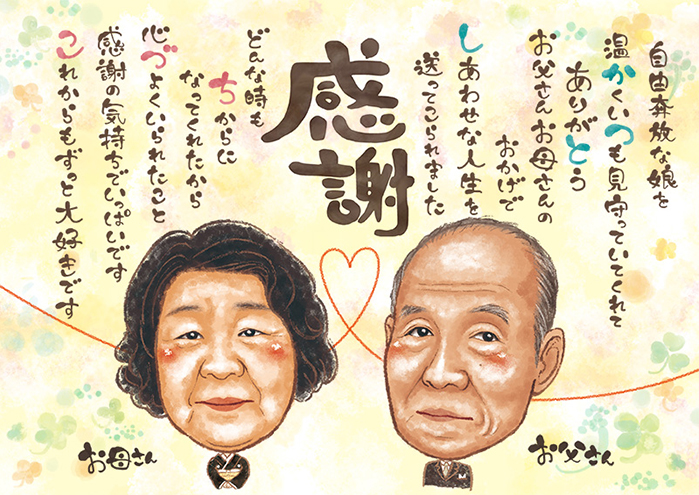 自由奔放な娘を
温かくいつも見守っていてくれて
ありがとう
お父さんお母さんの
おかげで
しあわせな人生を
送ってこられました
感謝
どんな時も
ちからに
なってくれたから
心づよくいられたこと
感謝の気持ちでいっぱいです
これからもずっと大好きです
お母さん
お父さん